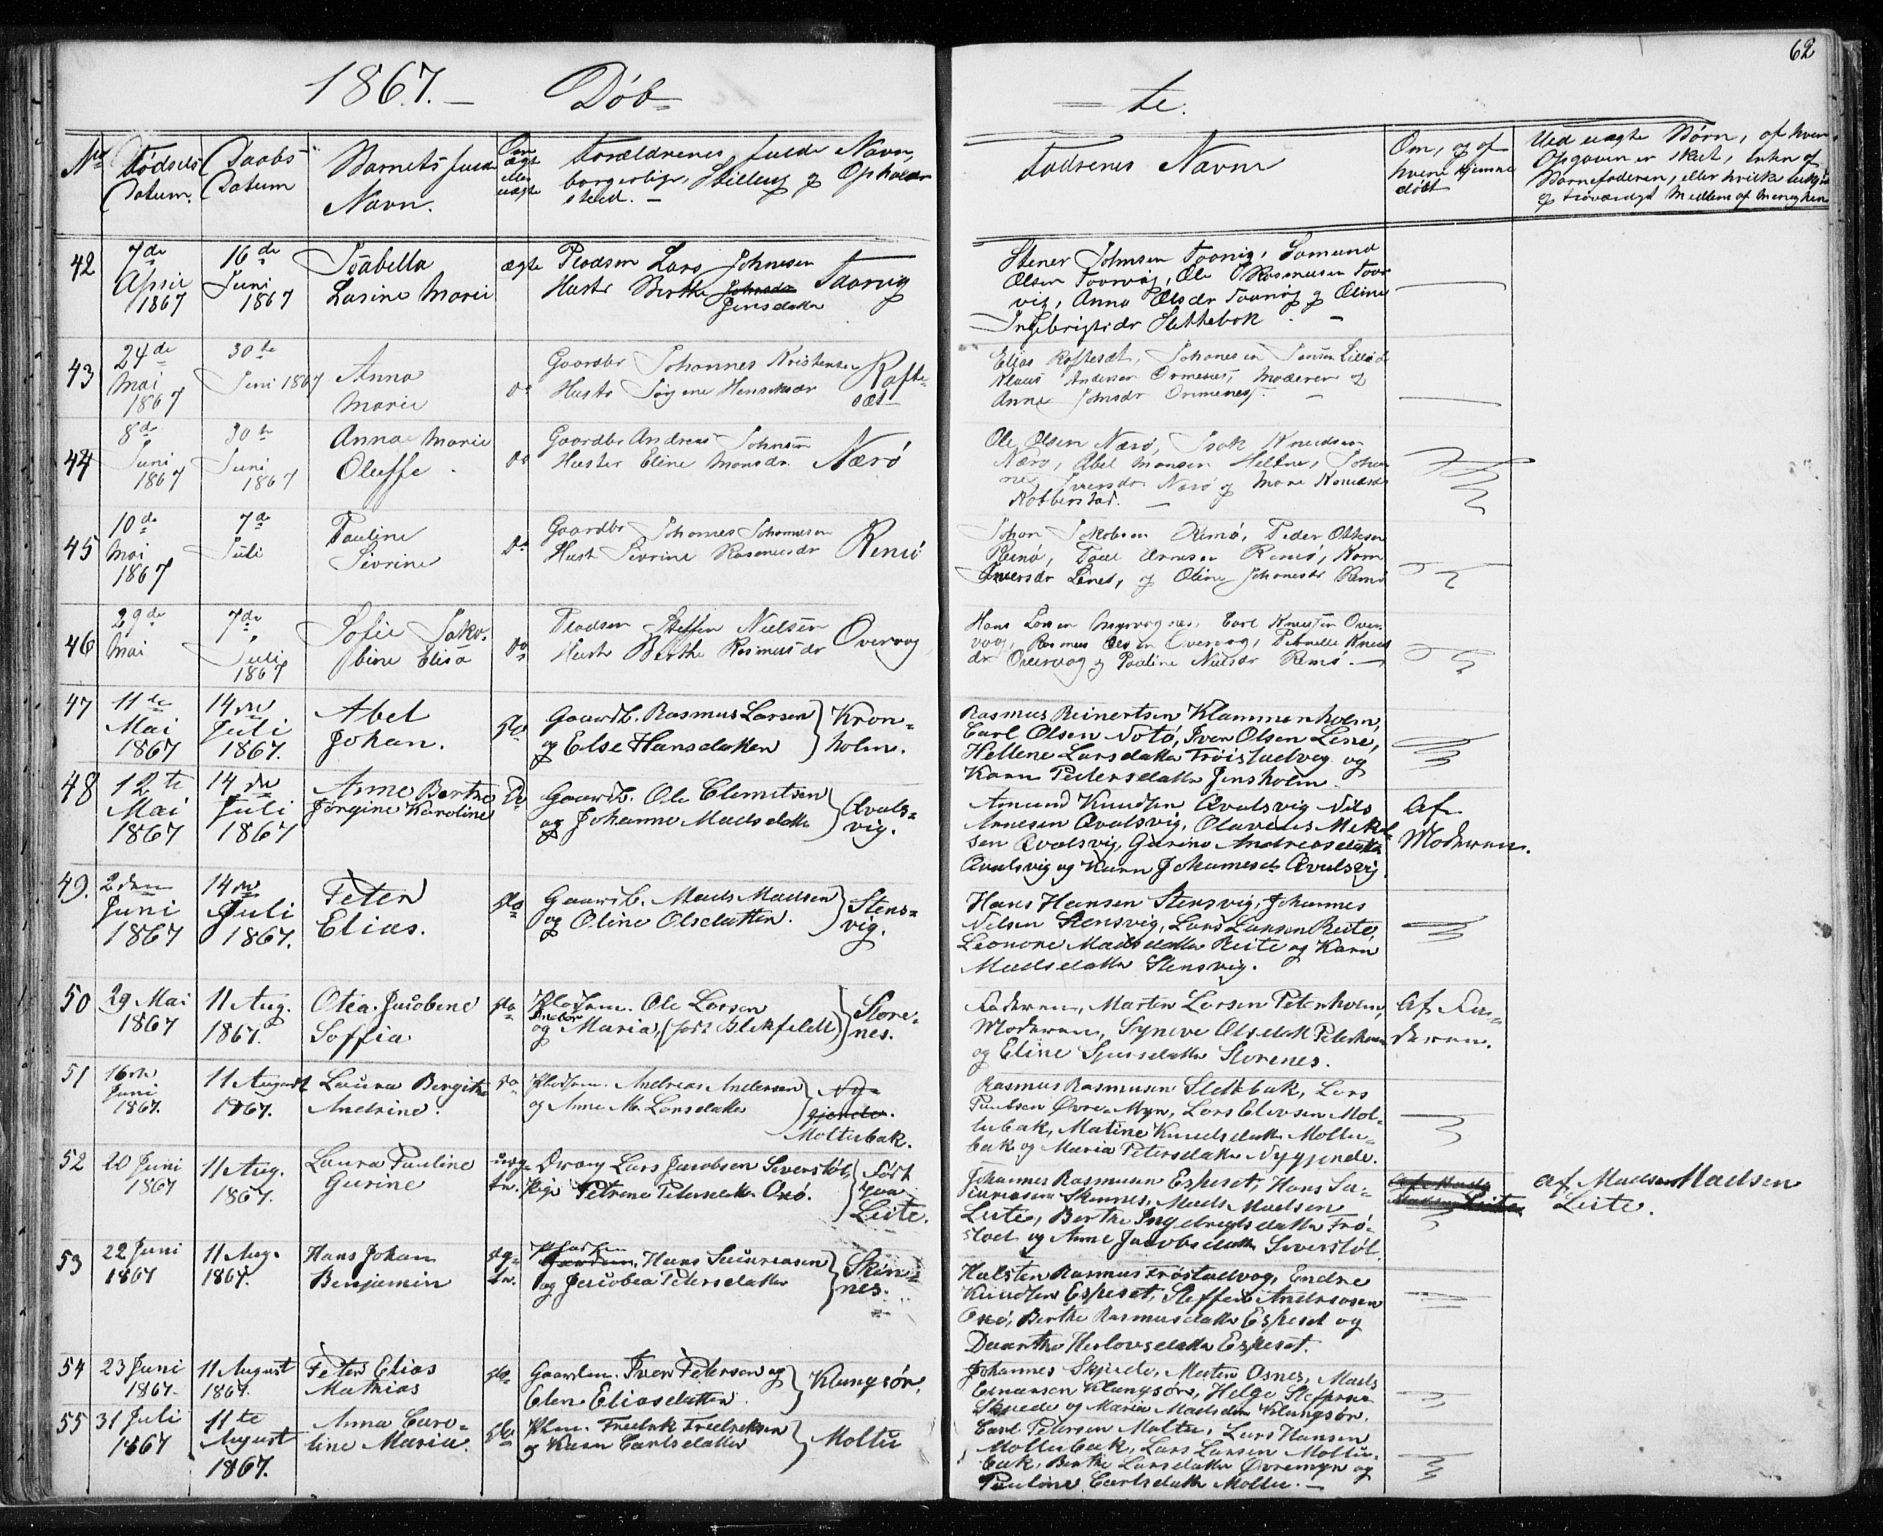 62
1867. — Døb=
= te.
No Fødsels Datum. Daabs Datum Barnets fulde Navn. Om ægte eller uægte Forældrenes fulde Navn, borgerlige Stilling og Opholds sted. —
Fadrenes Navne
Om, og af hvem hjemme døbt
Ved uægte Børn, af hvem Opgaven er skeet, enten af Barnefaderen, eller hvilke
og troværdigt Medlem af Menigheden
42 7de April 1867 16de Juni 1867 Isabella Lasine Marie ægte Pladsm Lars Johnsen Hustr Berthe Jensdatter Taarvig
Stener Johnsen Toorvig, Samund
Olsen Toorvig, Ole Rasmusen Toor
vig, Anna Olsdr Toorvig og Oline
Ingebrigtsdr Slettebak. —
43 24de Mai 1867 30te Juni 1867 Anna Marie do Gaardbr Johannes Kristensen Hustr Jørgine Henriksdr Raftesæt
Elias Raftesæt, Johannes
Klaus Andersen Ormenes, Moderen og
Anne Johnsdr Ormenes. —
44 8de Juni 1867 30te Juni 1867 Anna Marie Oluffe. do Gaardbr Andreas Johnsen Hustr Eline Monsdr. Nærø
Ole Olsen Nærø, Isak Knudsen
Nærø, Abel Monsen Heltne, Johan
ne Iversdr Nærø og Marie Knudsdr
Kobberstad. —
45 10de Mai 1867 7de Juli Pauline Sivrine do Gaardbr Johannes Johannesen Hust Sivrine Rasmusdr Remø
Johan Jakobsen Remø, Peder Ottesen
Remø, Paul Arnesen Remø, Karn
Iversdr Lines, og Oline Johanesdr Remø
46 29de Mai 7de Juli 1867 Sofie Jako- bine Elisa do Pladsm Steffen Nielsen Hustr Berthe Rasmusdr Overvaag
Hans Larsen Myrvognes, Carl Knudsen Over
vaag, Rasmus Olsen Overvaag, Petrnelle Knuds
dr Overvaag og Pauline Nielsdr Remø. —
47 11de Mai 1867 14de Juli 1867. Abel Johan. do Gaardb. Rasmus Larsen og Else Hansdatter } Kron- holm.
Rasmus Reinertsen Klammerholm,
Carl Olsen Notø, Iver Olsen Lisie,
Hellene Larsdatter Frøistadvig og
Karn Pedersdatter Jensholm.
48 12te Mai 1867 14de Juli 1867 Anne Berthe Jørgine Karoline Do Gaardb. Ole Clemetsen og Johanne Madsdatter } Qvals- vig.
Amund Knudsen Qvalsvig, Nils
Arnesen Qvalsvig, Olavius Mikel-
sen Qvalsvig, Gurine Andreasdatter
Qvalsvig og Karn Johannesdr Qvalsvig.
Af Moderen.
49. 2den Juni 1867 14de Juli 1867. Peter Elias. do Gaardb. Mads Madsen og Oline Olsdatter. } Stens- vig.
Hans Hansen Stensvig, Johannes
Nilsen Stensvig, Lars Larsen Reite,
Leonore Madsdatter Reite og Karn
Madsdatter Stensvig.
50 29 Mai 1867 11 Aug. 1867. Otea Jacobine Soffia do Pladsm. Ole Larsen og Maria, (født Blikfeldt) } Store- nes.
Faderen, Martin Larsen Petersholm,
Moderen, Synove Olsdatt Petersholm
og Eline Sjursdatter Storenes.
Af Fa- deren.
51 16de Juni 1867. 11 August 1867. Laura Bergithe Andrine. do Pladsm. Andreas Andersen og Anne M. Larsdatter } Ny- gjende. Moltubak.
Rasmus Rasmusen Slettebak, Lars
Paulsen Øvre-Myn, Lars Elisen Mol-
tubak, Matine Knudsdatter Moltu-
bak og Maria Petersdatter Nygjende.
52 20 Juni 1867 11 Aug. 1867. Laura Pauline Gurine uæg- te. Dreng Lars Jacobsen Siverstøl, Pige Petrine Petersdatter Oxø. } født paa Leite.
Johannes Rasmusen Espeset, Hans Za-
cariasen Skinnes, Mads Madsen
Leite, Berthe Ingebrigtsdatter Frø-
stad og Anne Jacobsdatter Siverstøl.
Af Mads Madsen Leite.
af Mads Madsen Leite.
53 22 Juni 1867 11 Aug. 1867. Hans Johan Benjamin æg- te. Pladsm. Gaardm. Hans Zacariasen og Jacobea Petersdatter } Skin- nes.
Halsten Rasmus Frøstadvog, Endre
Knudsen Espeset, Steffen Andreasen
Oxø, Berthe Rasmusdatter Espeset og
Daarthe Herlovsdatter Espeset.
54 23 Juni 1867 11 August 1867. Peter Elias Mathias do. Gaardm. Iver Petersen og Elen Eliasdatter } Klungsør.
Johannes Skjeide, Morten Osnes, Mads
Einarsen Klungsør, Helge Steffensen
Skjeide og Maria Madsdatter Klungsør.
55 31 Juli 1867 11te August 1867. Anna Caro- line Maria. do Plm. Fredrik Fredriksen og Karn Carlsdatter } Moltu
Carl Petersen Moltu, Lars Hansen
Moltubak, Lars Larsen Moltu-
bak, Berthe Larsdatter Øvremyn og
Pauline Carlsdatter Moltu. —